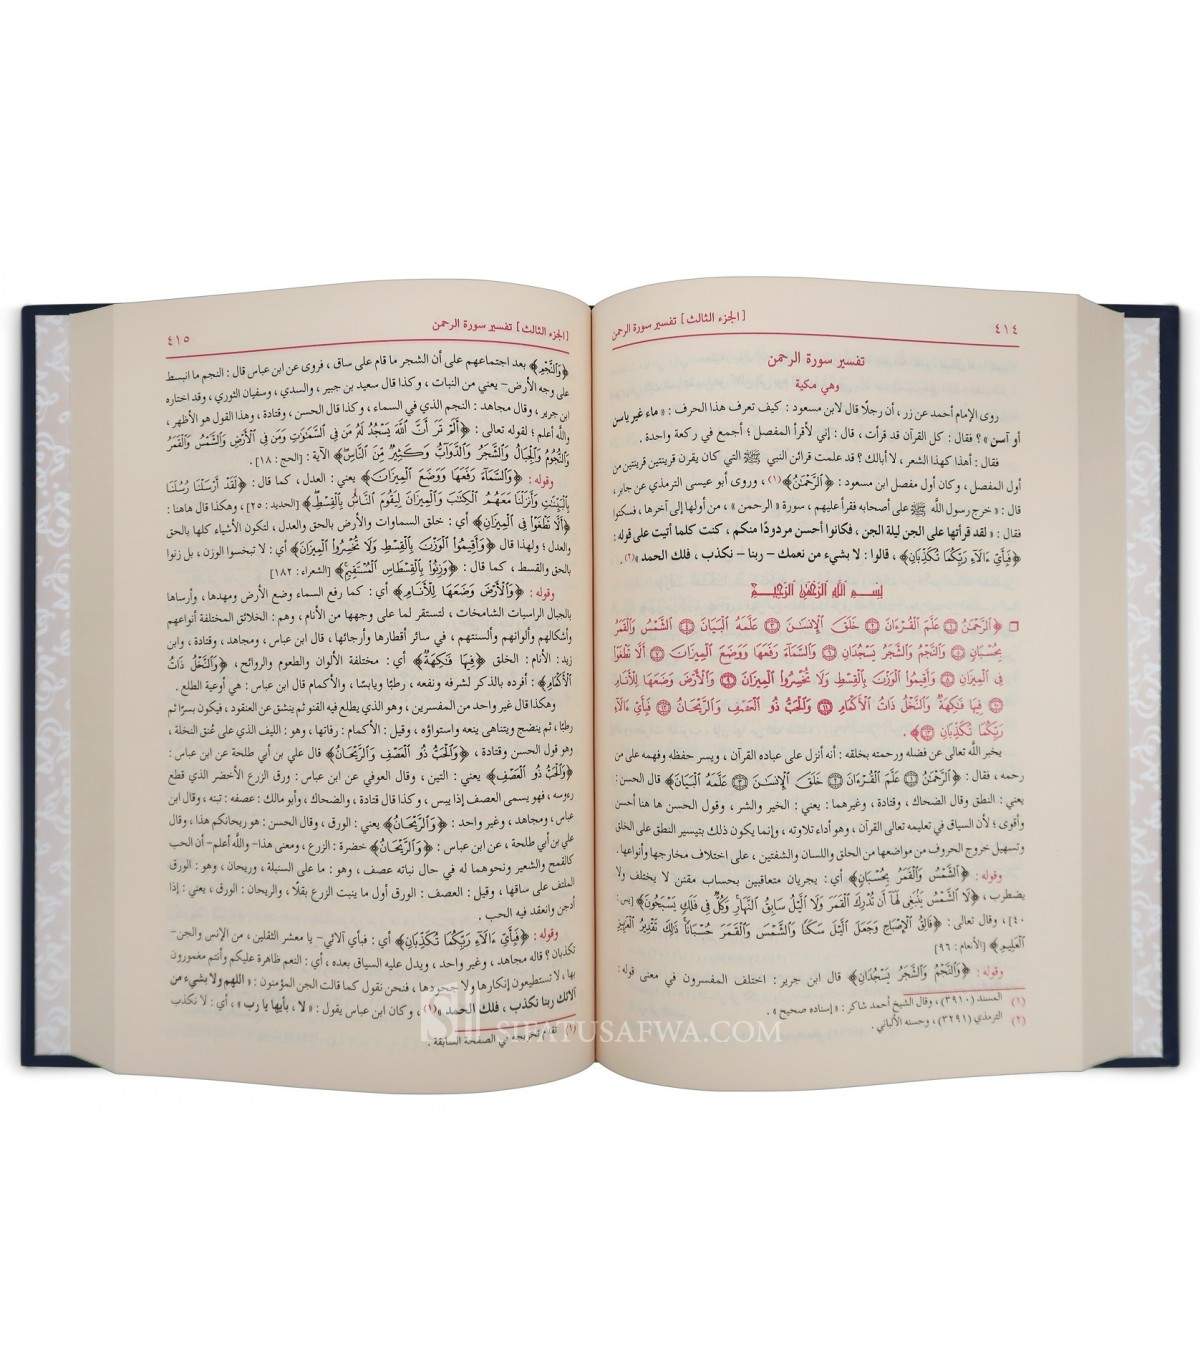 ٤١٤
[ الجزء الثالث ] تفسير سورة الرحمن
تفسير سورة الرحمن
وهي مكية
روى الإمام أحمد عن زر ، أن رجلًا قال لابن مسعود : كيف تعرف هذا الحرف : « ماء غير ياسن
أو آسن » ؟ فقال : كل القرآن قد قرأت ، قال : إني لأقرأ المفصل ؛ أجمع في ركعة واحدة .
فقال : أهذا كهذا الشعر ، لا أبالك ؟ قد علمت قرائن النبي ﷺ التي كان يقرن قرينتين قرينتين من
أول المفصل ، وكان أول مفصل ابن مسعود : ﴿الرَّحْمَٰنُ﴾(١) ، وروى أبو عيسى الترمذي عن جابر ،
قال : « خرج رسول اللَّه ﷺ على أصحابه فقرأ عليهم ، سورة « الرحمن » ، من أولها إلى آخرها ، فسكتوا
فقال : « لقد قرأتها على الجن ليلة الجن ، فكانوا أحسن مردودًا منكم ، كنت كلما أتيت على قوله :
﴿فَبِأَيِّ ءَالَآءِ رَبِّكُمَا تُكَذِّبَانِ﴾ ، قالوا : لا بشيء من نعمك – ربنا – نكذب ، فلك الحمد »(٢) .
بِسْمِ اللَّهِ الرَّحْمَٰنِ الرَّحِيمِ
﴿الرَّحْمَٰنُ ١ عَلَّمَ ٱلْقُرْءَانَ ٢ خَلَقَ ٱلْإِنسَٰنَ ٣ عَلَّمَهُ ٱلْبَيَانَ ٤ ٱلشَّمْسُ وَٱلْقَمَرُ
بِحُسْبَانٍ ٥ وَٱلنَّجْمُ وَٱلشَّجَرُ يَسْجُدَانِ ٦ وَٱلسَّمَآءَ رَفَعَهَا وَوَضَعَ ٱلْمِيزَانَ ٧ أَلَّا تَطْغَوْا۟
فِى ٱلْمِيزَانِ ٨ وَأَقِيمُوا۟ ٱلْوَزْنَ بِٱلْقِسْطِ وَلَا تُخْسِرُوا۟ ٱلْمِيزَانَ ٩ وَٱلْأَرْضَ وَضَعَهَا لِلْأَنَامِ
١٠ فِيهَا فَٰكِهَةٌ وَٱلنَّخْلُ ذَاتُ ٱلْأَكْمَامِ ١١ وَٱلْحَبُّ ذُو ٱلْعَصْفِ وَٱلرَّيْحَانُ ١٢ فَبِأَىِّ ءَالَآءِ
رَبِّكُمَا تُكَذِّبَانِ ١٣﴾ .
يخبر اللَّه تعالى عن فضله ورحمته بخلقه : أنه أنزل على عباده القرآن ، ويسر حفظه وفهمه على من
رحمه ، فقال : ﴿الرَّحْمَٰنُ ١ عَلَّمَ ٱلْقُرْءَانَ ٢ خَلَقَ ٱلْإِنسَٰنَ ٣ عَلَّمَهُ ٱلْبَيَانَ﴾ قال الحسن :
يعني : النطق وقال الضحاك ، وقتادة ، وغيرهما : يعني : الخير والشر ، وقول الحسن ها هنا أحسن
وأقوى ؛ لأن السياق في تعليمه تعالى القرآن ، وهو أداء تلاوته ، وإنما يكون ذلك بتيسير النطق على الخلق
وتسهيل خروج الحروف من مواضعها من الحلق واللسان والشفتين ، على اختلاف مخارجها وأنواعها .
وقوله : ﴿ٱلشَّمْسُ وَٱلْقَمَرُ بِحُسْبَانٍ﴾ أي : يجريان متعاقبين بحساب مقنن لا يختلف ولا
يضطرب ، ﴿لَا ٱلشَّمْسُ يَنۢبَغِى لَهَآ أَن تُدْرِكَ ٱلْقَمَرَ وَلَا ٱلَّيْلُ سَابِقُ ٱلنَّهَارِ وَكُلٌّ فِى فَلَكٍ يَسْبَحُونَ﴾ [يس :
٤٠] ، وقال تعالى : ﴿فَالِقُ ٱلْإِصْبَاحِ وَجَعَلَ ٱلَّيْلَ سَكَنًا وَٱلشَّمْسَ وَٱلْقَمَرَ حُسْبَانًا ذَٰلِكَ تَقْدِيرُ ٱلْعَزِيزِ
ٱلْعَلِيمِ﴾ [الأنعام : ٩٦]
وقوله : ﴿وَٱلنَّجْمُ وَٱلشَّجَرُ يَسْجُدَانِ﴾ قال ابن جرير : اختلف المفسرون في معنى قوله :
(١) المسند (٣٩١٠) ، وقال الشيخ أحمد شاكر : « إسناده صحيح » .
(٢) الترمذي (٣٢٩١) ، وحسنه الألباني .
[الجزء الثالث] تفسير سورة الرحمن
٤١٥
﴿وَٱلنَّجْمُ﴾ بعد اجتماعهم على أن الشجر ما قام على ساق ، فروى عن ابن عباس قال : النجم ما انبسط
على وجه الأرض- يعني من النبات ، وكذا قال سعيد بن جبير ، والسدي ، وسفيان الثوري ، وقد اختاره
ابن جرير ، وقال مجاهد : النجم الذي في السماء ، وكذا قال الحسن ، وقتادة ، وهذا القول هو الأظهر ،
واللَّه أعلم ؛ لقوله تعالى : ﴿أَلَمْ تَرَ أَنَّ ٱللَّهَ يَسْجُدُ لَهُۥ مَن فِى ٱلسَّمَٰوَٰتِ وَمَن فِى ٱلْأَرْضِ وَٱلشَّمْسُ وَٱلْقَمَرُ
وَٱلنُّجُومُ وَٱلْجِبَالُ وَٱلشَّجَرُ وَٱلدَّوَآبُّ وَكَثِيرٌ مِّنَ ٱلنَّاسِ﴾ الآية : [الحج : ١٨] .
وقوله : ﴿وَٱلسَّمَآءَ رَفَعَهَا وَوَضَعَ ٱلْمِيزَانَ﴾ يعني : العدل ، كما قال : ﴿لَقَدْ أَرْسَلْنَا رُسُلَنَا
بِٱلْبَيِّنَٰتِ وَأَنزَلْنَا مَعَهُمُ ٱلْكِتَٰبَ وَٱلْمِيزَانَ لِيَقُومَ ٱلنَّاسُ بِٱلْقِسْطِ﴾ [الحديد : ٢٥] ، وهكذا قال هاهنا :
﴿أَلَّا تَطْغَوْا۟ فِى ٱلْمِيزَانِ﴾ أي : خلق السماوات والأرض بالحق والعدل ، لتكون الأشياء كلها بالحق
والعدل ؛ ولهذا قال ﴿وَأَقِيمُوا۟ ٱلْوَزْنَ بِٱلْقِسْطِ وَلَا تُخْسِرُوا۟ ٱلْمِيزَانَ﴾ أي : لا تبخسوا الوزن ، بل زنوا
بالحق والقسط ، كما قال : ﴿وَزِنُوا۟ بِٱلْقِسْطَاسِ ٱلْمُسْتَقِيمِ﴾ [الشعراء : ١٨٢]
وقوله : ﴿وَٱلْأَرْضَ وَضَعَهَا لِلْأَنَامِ﴾ أي : كما رفع السماء وضع الأرض ومهدها ، وأرساها
بالجبال الراسيات الشامخات ، لتستقر لما على وجهها من الأنام ، وهم : الخلائق المختلفة أنواعهم
وأشكالهم وألوانهم وألسنتهم ، في سائر أقطارها وأرجائها ، قال ابن عباس ، ومجاهد ، وقتادة ، وابن
زيد : الأنام : الخلق ﴿فِيهَا فَٰكِهَةٌ﴾ أي : مختلفة الألوان والطعوم والروائح ، ﴿وَٱلنَّخْلُ ذَاتُ
ٱلْأَكْمَامِ﴾ : أفرده بالذكر لشرفه ونفعه ، رطبًا ويابسًا ، والأكمام قال ابن عباس : هي أوعية الطلع .
وهكذا قال غير واحد من المفسرين ، وهو الذي يطلع فيه القنو ثم ينشق عن العنقود ، فيكون بسرًا ثم
رطبًا ، ثم ينضج ويتناهى ينعه واستواؤه ، وقيل : الأكمام : رفاتها ، وهو : الليف الذي على عُنق النخلة ،
وهو قول الحسن وقتادة ، ﴿وَٱلْحَبُّ ذُو ٱلْعَصْفِ وَٱلرَّيْحَانُ﴾ قال علي بن أبي طلحة عن ابن عباس :
﴿وَٱلْحَبُّ ذُو ٱلْعَصْفِ﴾ يعني : التبن ، وقال العوفي عن ابن عباس : ورق الزرع الأخضر الذي قطع
رءوسه ، فهو يسمى العصف إذا يبس ، وكذا قال قتادة ، والضحاك ، وأبو مالك : عصفه : تبنه ، وقال ابن
عباس ، ومجاهد ، وغير واحد : ﴿وَٱلرَّيْحَانُ﴾ يعني : الورق ، وقال الحسن : هو ريحانكم هذا ، وقال
علي بن أبي طلحة ، عن ابن عباس : ﴿وَٱلرَّيْحَانُ﴾ خضرة : الزرع ، ومعنى هذا- واللَّه أعلم- أن الحب
كالقمح والشعير ونحوهما له في حال نباته عصف ، وهو : ما على السنبلة ، وريحان ، وهو : الورق
الملتف على ساقها ، وقيل : العصف : الورق أول ما ينبت الزرع بقلًا ، والريحان : الورق ، يعني : إذا
أدجن وانعقد فيه الحب .
وقوله : ﴿فَبِأَىِّ ءَالَآءِ رَبِّكُمَا تُكَذِّبَانِ﴾ أي : فبأي آلائي- يا معشر الثقلين ، من الإنس والجن-
تكذبان ؟ قاله مجاهد ، وغير واحد ، ويدل عليه السياق بعده ، أي : النعم ظاهرة عليكم وأنتم مغمورون
بها ، لا تستطيعون إنكارها ولا جحودها ، فنحن نقول كما قالت الجن المؤمنون : « اللهم ولا بشيء من
آلائك ربنا نكذب ، فلك الحمد »(١) ، وكان ابن عباس يقول : « لا ، بأيها يا رب » ، أي : لا نكذب
(١) تقدم تخريجه في الصفحة السابقة .
SIFATUSAFWA.COM